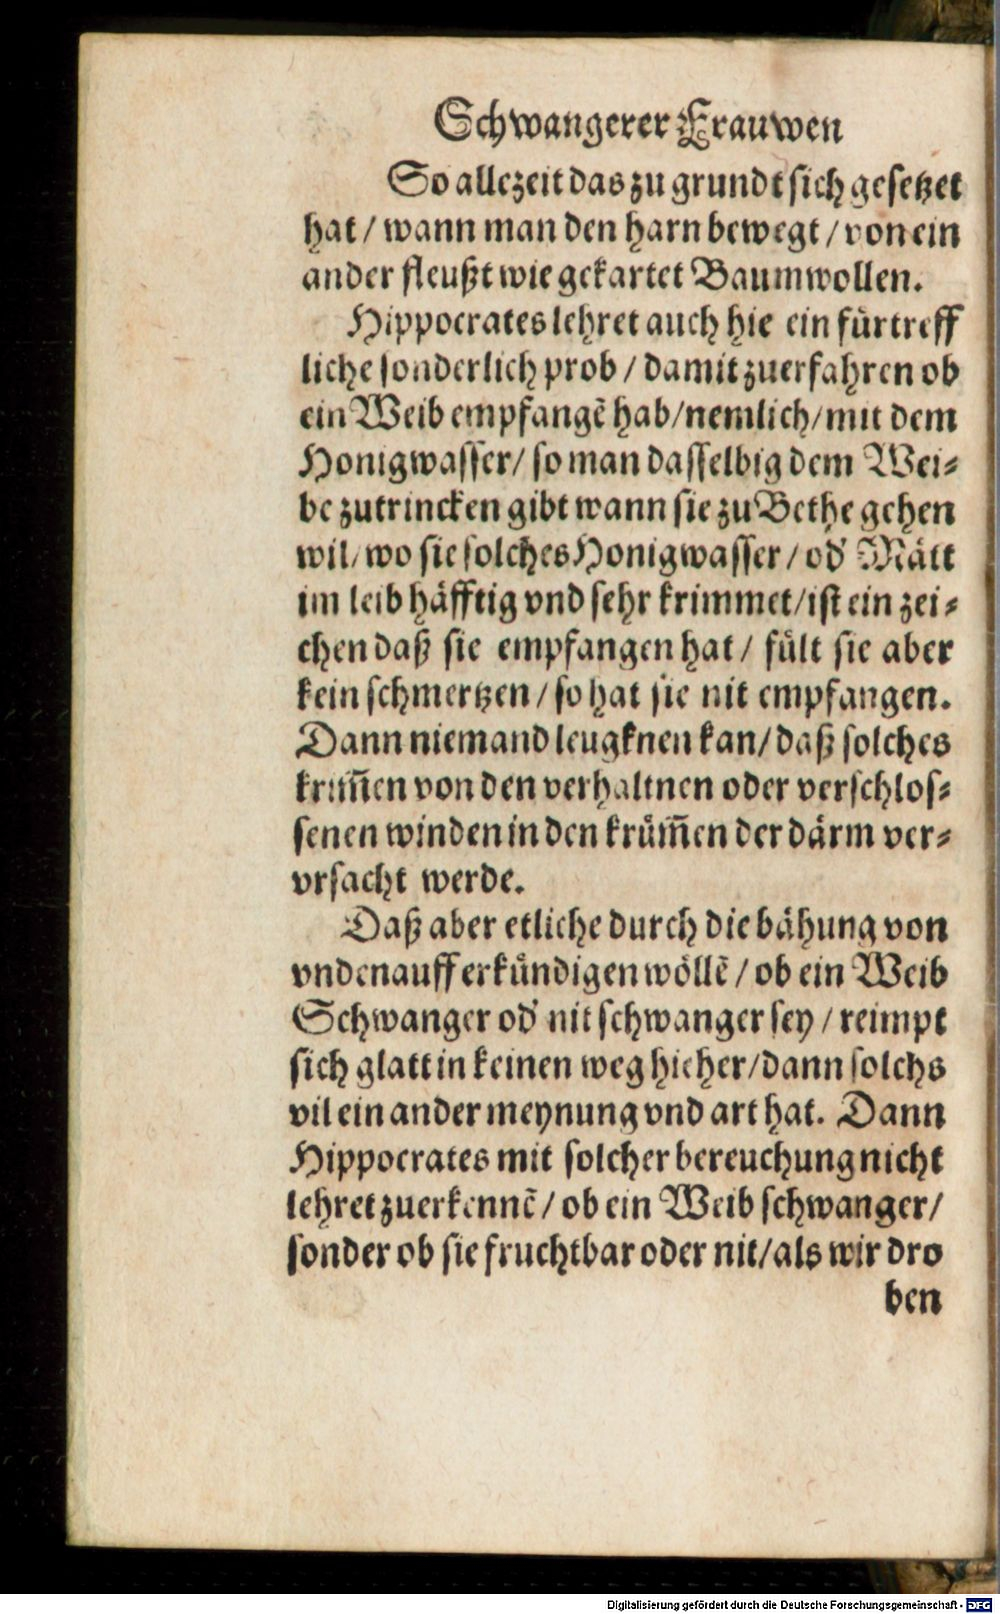 Schwangerer Frauwen
So allezeit das zu grundt sich gesetzet
hat / wann man den harn bewegt / von ein
ander fleußt wie gekartet Baumwollen.
Hippocrates lehret auch hie ein fürtreff
liche sonderlich prob / damit zuerfahren ob
ein Weib empfangẽ hab / nemlich / mit dem
Honigwasser / so man dasselbig dem Wei⸗
be zutrincken gibt wann sie zu Bethe gehen
wil / wo sie solches Honigwasser / od' Mätt
im leib häfftig vnd sehr krimmet / ist ein zei⸗
chen daß sie empfangen hat / fült sie aber
kein schmertzen / so hat sie nit empfangen.
Dann niemand leugknen kan / daß solches
krim̃en von den verhaltnen oder verschlos⸗
senen winden in den krüm̃en der därm ver⸗
vrsacht werde.
Daß aber etliche durch die bähung von
vndenauff erkündigen wöllẽ / ob ein Weib
Schwanger od' nit schwanger sey / reimpt
sich glatt in keinen weg hieher / dann solchs
vil ein ander meynung vnd art hat. Dann
Hippocrates mit solcher bereuchung nicht
lehret zuerkennẽ / ob ein Weib schwanger /
sonder ob sie fruchtbar oder nit / als wir dro
ben
Digitalisierung gefördert durch die Deutsche Forschungsgemeinschaft - DFG